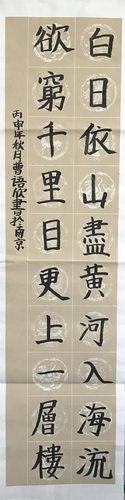 白日依山盡黃河入海流
欲窮千里目更上一層樓
丙申年秋月曹语欣書於南京